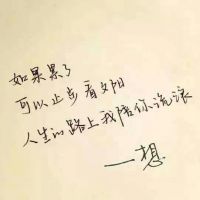 如果累了
可以止步看夕阳
人生的路上我陪你流浪
一想